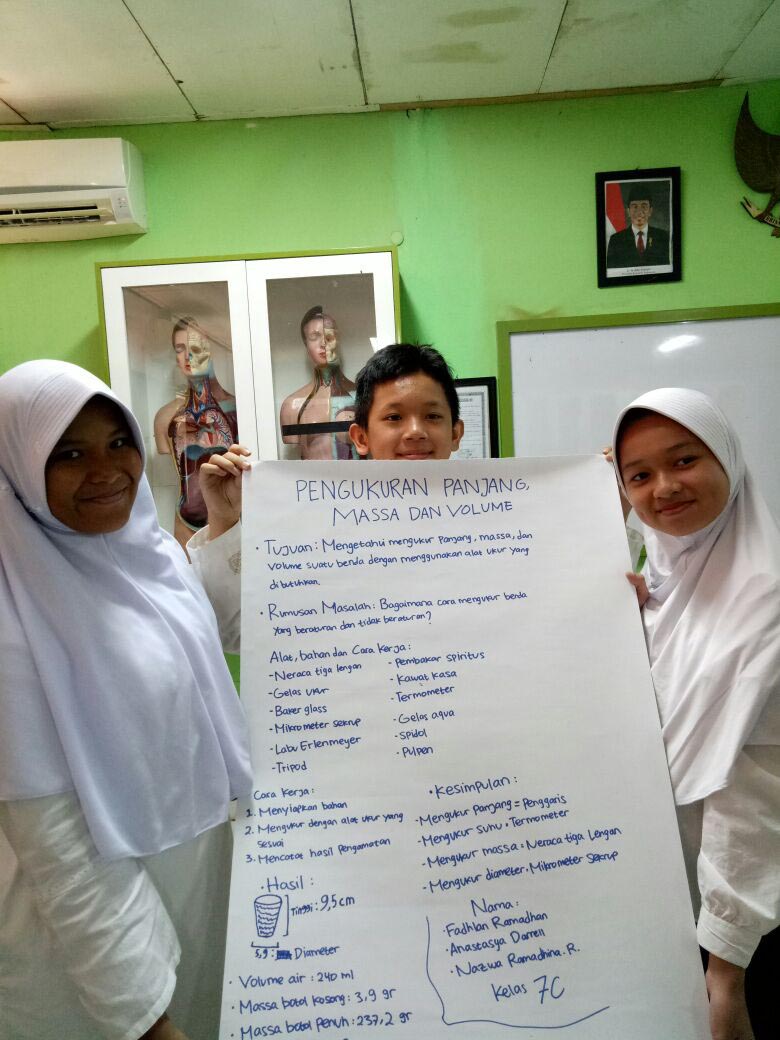 PENGUKURAN PANJANG,
MASSA DAN VOLUME
• Tujuan : Mengetahui mengukur panjang, massa, dan
volume suatu benda dengan menggunakan alat ukur yang
dibutuhkan.
• Rumusan Masalah : Bagaimana cara mengukur benda
yang beraturan dan tidak beraturan?
Alat, bahan dan Cara kerja :
- Neraca tiga lengan
- Gelas ukur
- Baker glass
- Mikrometer sekrup
- Labu Erlenmeyer
- Tripod
- Pembakar spiritus
- Kawat kasa
- Termometer
- Gelas aqua
- Spidol
- Pulpen
Cara kerja :
1. Menyiapkan bahan
2. Mengukur dengan alat ukur yang
sesuai
3. Mencatat hasil pengamatan
• Hasil :
Tinggi : 9,5 cm
5,9 : Diameter
• Volume air : 240 ml
• Massa botol kosong : 3,9 gr
• Massa botol penuh : 237,2 gr
• Kesimpulan :
- Mengukur panjang = Penggaris
- Mengukur suhu = Termometer
- Mengukur massa = Neraca tiga lengan
- Mengukur diameter = Mikrometer sekrup
Nama :
• Fadhlan Ramadhan
• Anastasya Darrell
• Nazwa Ramadhina. R.
Kelas 7C